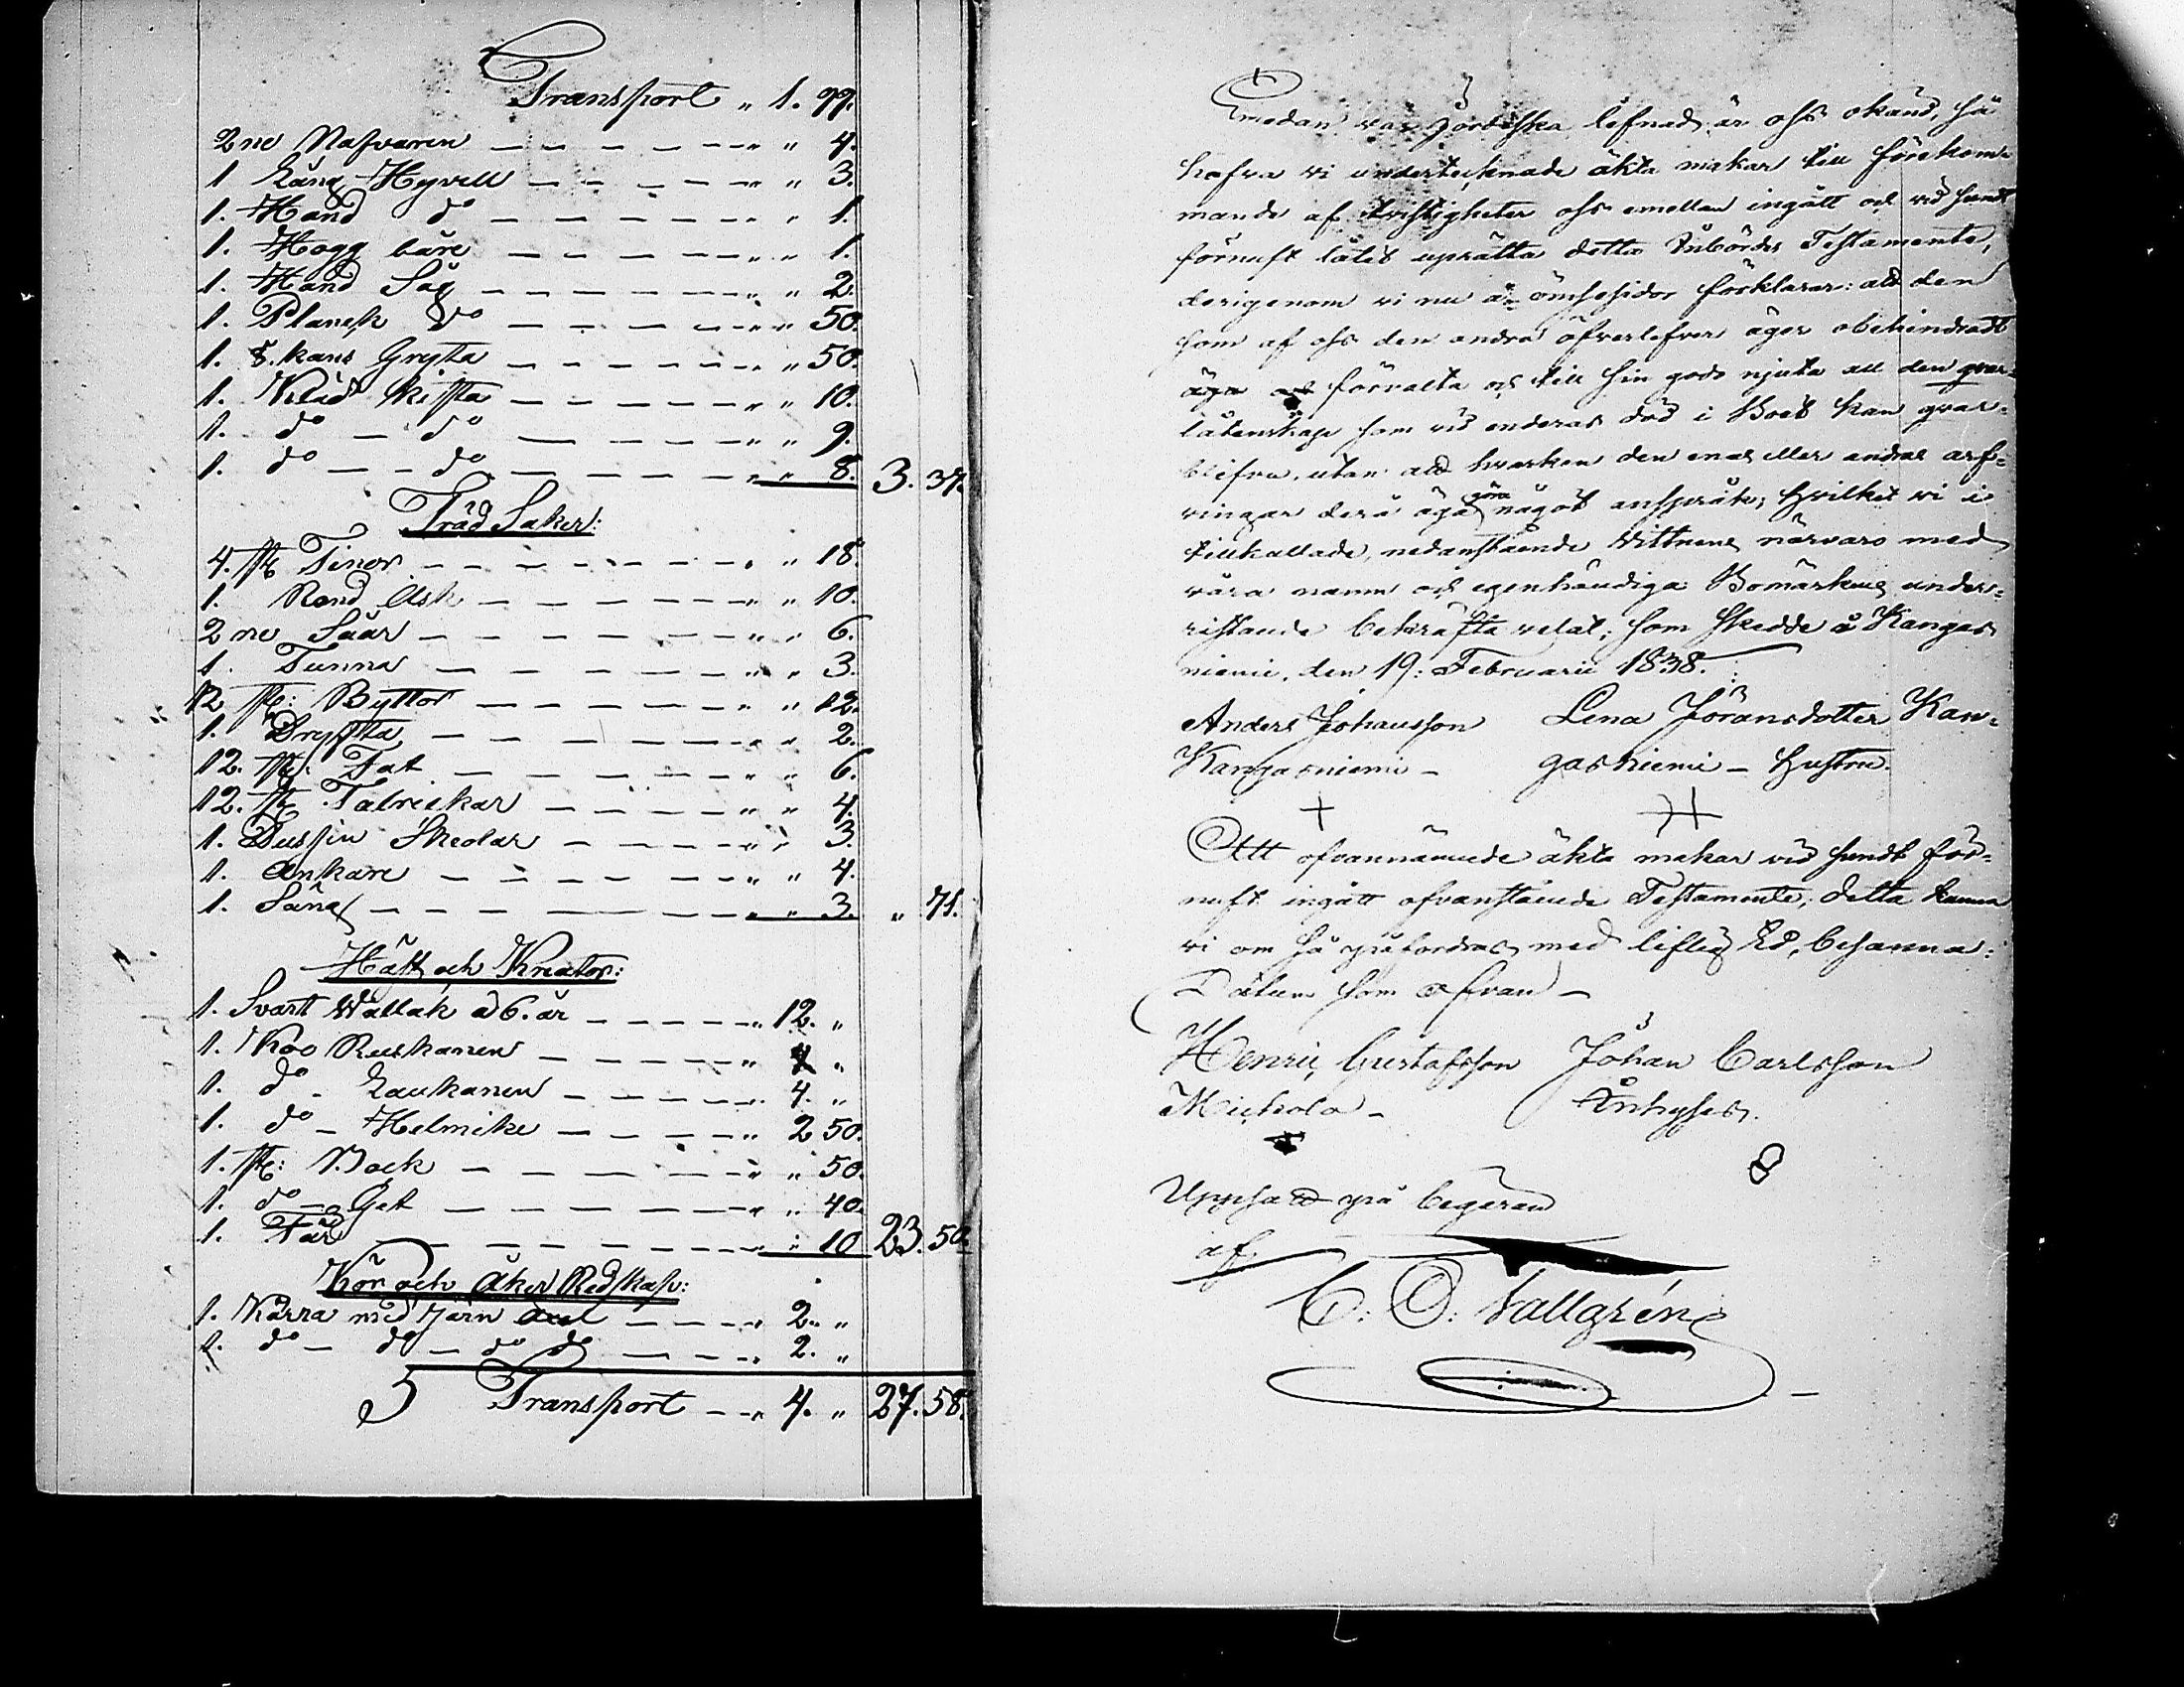 Transport " 1. 99.
2ne Nafvaren — — — " 4.
1 Lång Hyvell — — — " 3.
1. Hand do — — — " 1.
1. Hogg bäre — — — " 1.
1. Hand Såg — — — " 2.
1. Planck do — — — " 50.
1. 8. kans Gryta — — — " 50.
1. Kläd kista — — — " 10.
1. do — do — — — " 9.
1. do — do — — — " 8. 3. 37.
Träd Saker:
4. st: Tinor — — — " 18.
1. Rund Ask — — — " 10.
2ne Såar — — — " 6.
1. Tunna — — — " 3.
12 st: Byttor — — — " 12.
1. Dryftta — — — " 2.
12. st: Fat — — — " 6.
12. st: Talrickar — — — " 4.
1. Dussin Skedar — — — " 3.
1. Ankare — — — " 4.
1. Säng — — — " 3. " 71.
Häst och Kreator:
1. Svart Wallak à 6. år — — — 12. "
1. Koo Ruskanen — — — 4 "
1. do - Laukanen — — — 4. "
1. do - Helmike — — — 2 50.
1. st: Bock — — — " 50.
1. do - Get — — — " 40.
1. Får — — — " 10 23. 50.
Kör och Åker Redskap:
1. Kärra med Järn Axel — — — 2. "
1. do - do - do do — — — 2. "
Transport — — 4. " 27. 58.
Emedan vår jordiska lefnad är oss okänd, så
hafva vi undertecknade äkta makar till förekom-
mande af tvistigheter oss emellan ingått och vid sundt
förnuft låtit uprätta detta Inbördes Testamente,
derigenom vi nu å ömsesidor förklarar: att den
som af oss den andra öfverlefver äger obehindradt
äga att förvalta och till sin godo njuta all den qvar-
låtenskap som vid enderas död i Boet kan qvar-
blifva, utan att hvarken den enas eller andras arf-
vingar derå äga göra något anspråk; hvilket vi i
tillkallade, nedanstående Vittnens närvaro med
våra namn och egenhändiga Bomärkens under-
ristande bekräfta velat; som skedde å Kangas
niemi, den 19: Februarii 1838.
Anders Johansson Lena Jöransdotter Kan-
Kangasniemi - gasniemi - hustru.
Att ofvannämnde äkta makar vid sundt för-
nuft ingått ofvanstående Testamente, detta kunna
vi om så påfordras med liflig Ed, besanna:
Datum som ofvan -
Henric Gustafsson Johan Carlsson
Mickola - Änhyses.
Uppsatt på begäran
af
C: O: Vallgrén